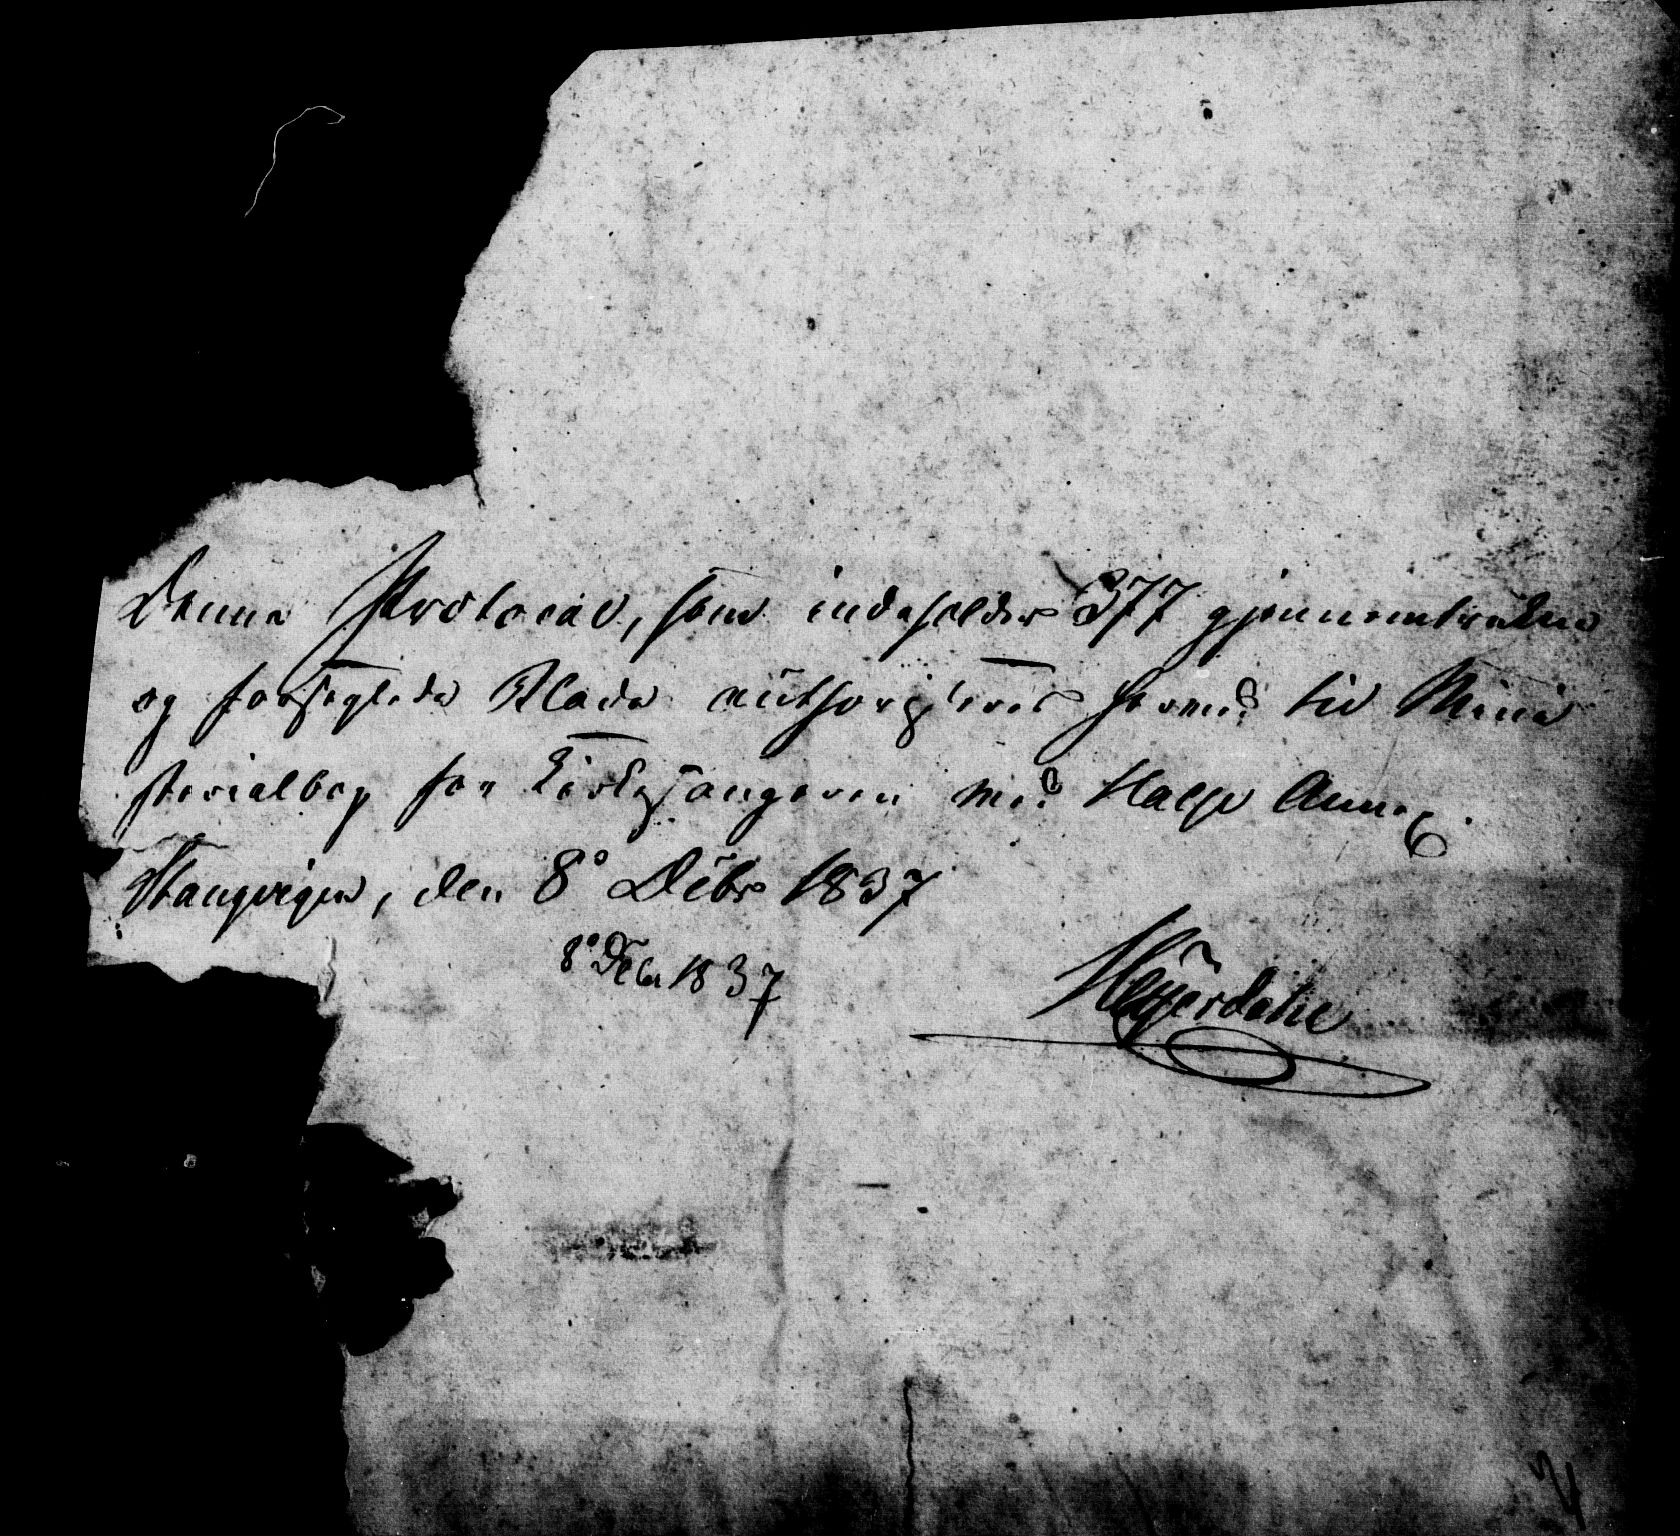 Denne Protocol, som indeholder 377 gjennemtrukne
og forseglede Blade authoriseres hermed til Mini
sterialbog for Kirkesangeren ved Halse Annex.
Stangvigen, den 8° Decbr 1837
8° Decbr 1837
Heyerdahl